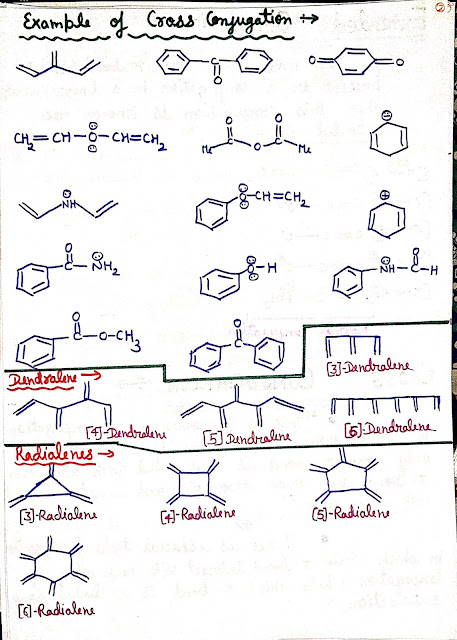 Example of Cross Conjugation →
C
O
O
O
CH2=CH-O-CH=CH2
O
O
Me
O
Me
NH
O-CH=CH2
O
C
NH2
O-H
O
NH-C-H
O
C
O-CH3
O
C
[3]-Dendralene
Dendralene →
[4]-Dendralene
[5] Dendralene
[6]-Dendralene
Radialenes →
[3]-Radialene
[4]-Radialene
[5]-Radialene
[6]-Radialene